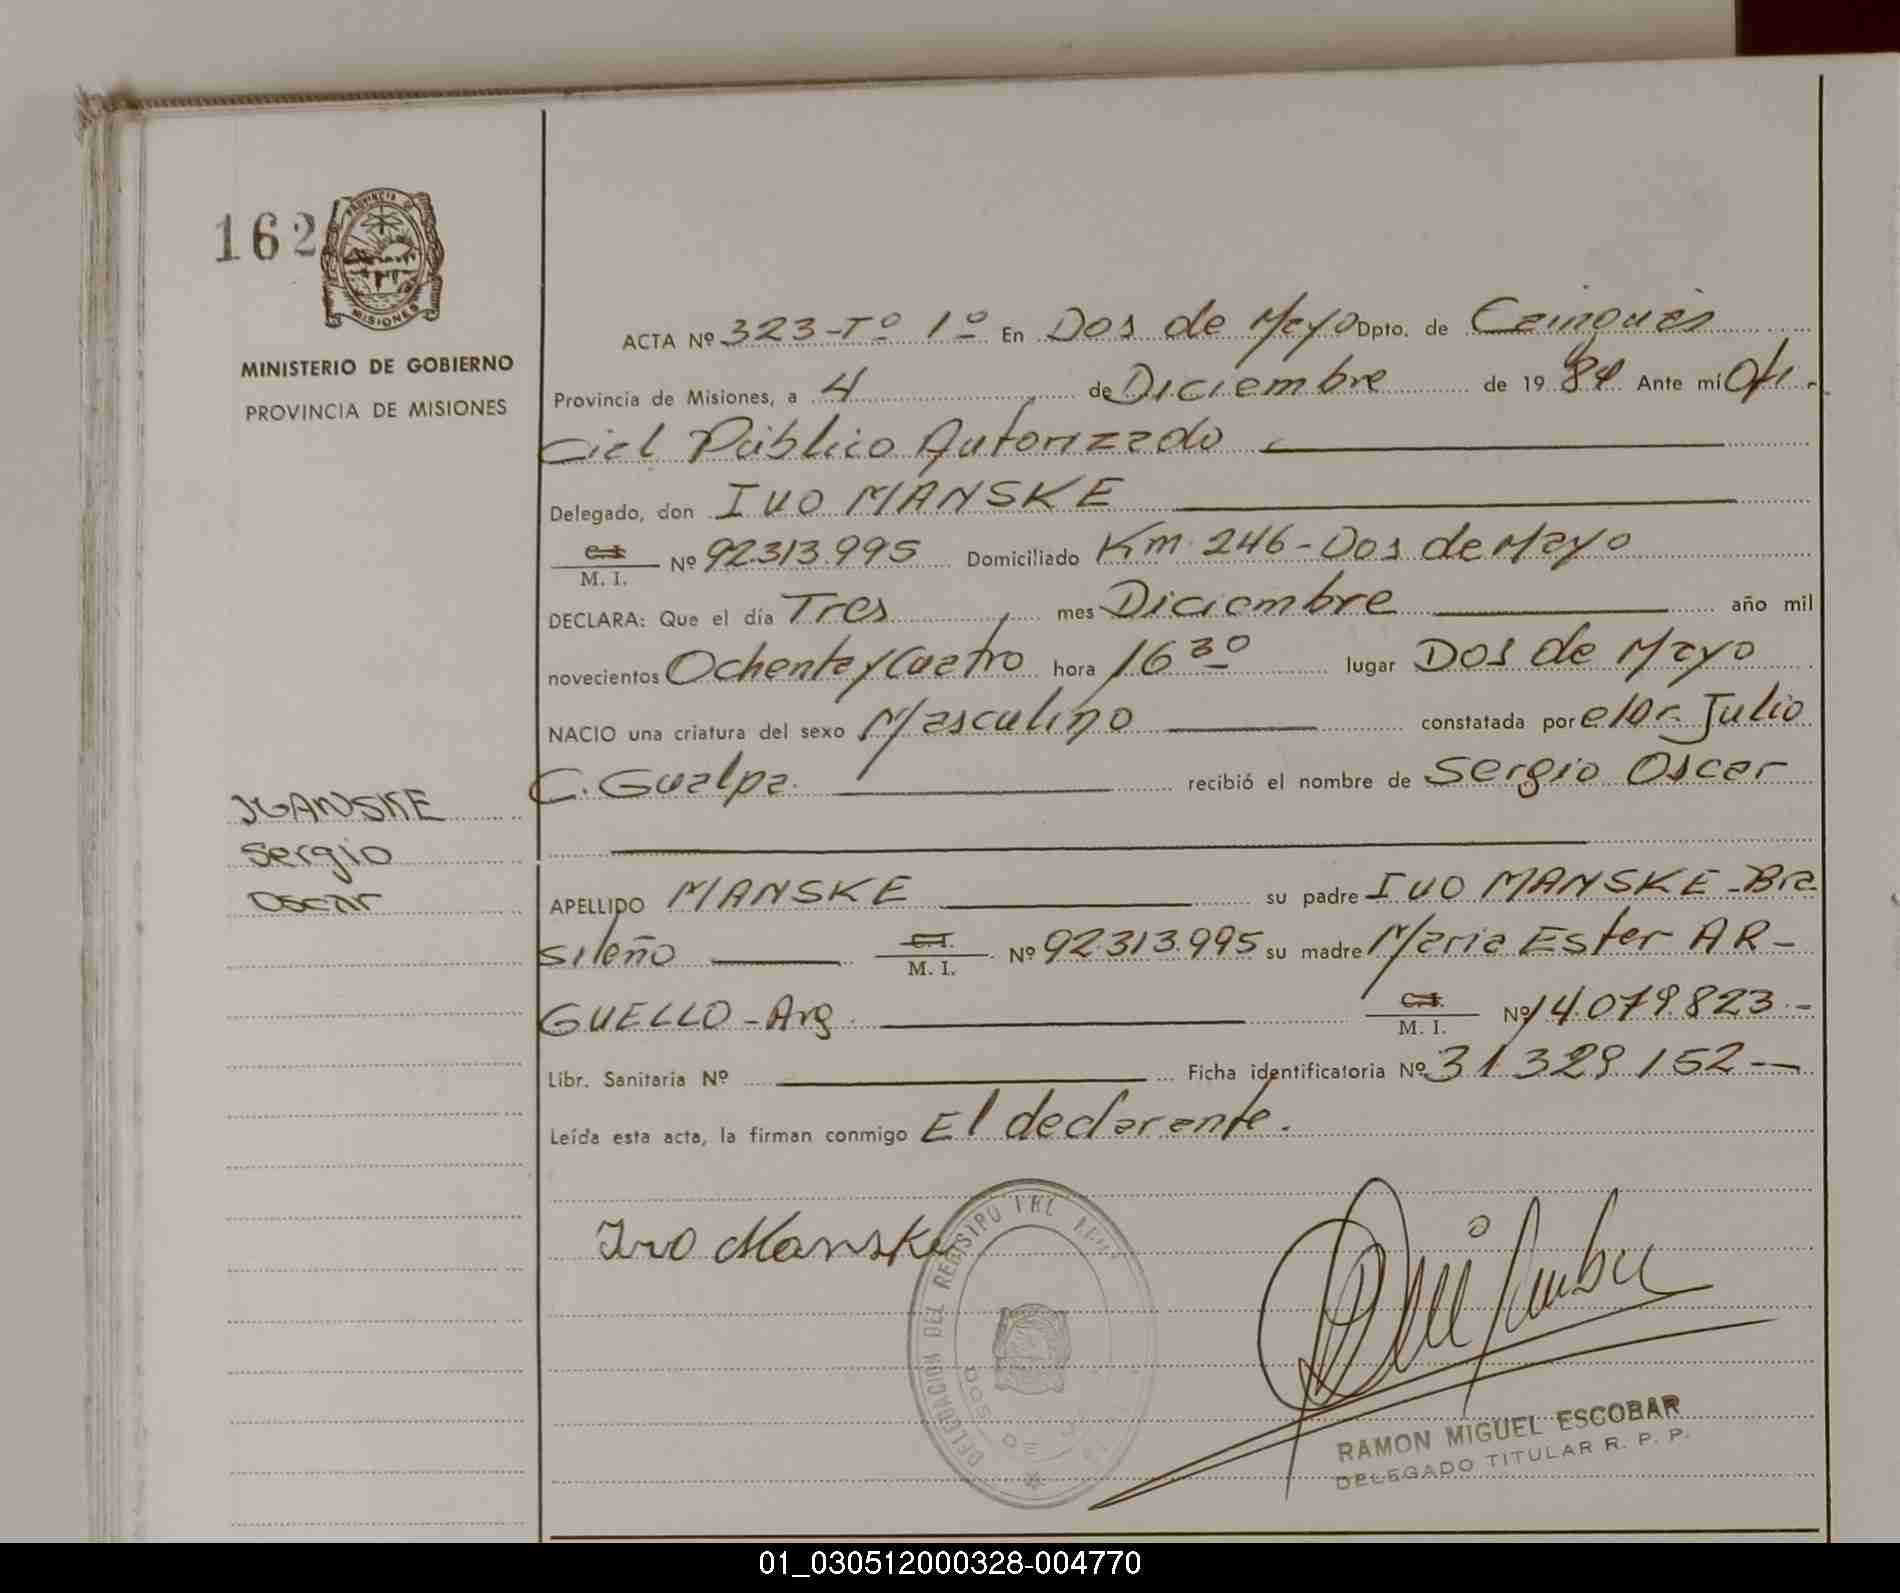 162
PROVINCIA DE
MISIONES
MINISTERIO DE GOBIERNO
PROVINCIA DE MISIONES
ACTA Nº 323-Tº 1º En Dos de Mayo Dpto. de Cainguás
Provincia de Misiones, a 4 de Diciembre de 1984 Ante mí Ofi-
cial Público Autorizado
Delegado, don IVO MANSKE
C.I.
M. I. Nº 92.313.995 Domiciliado Km. 246-Dos de Mayo
DECLARA: Que el día Tres mes Diciembre año mil
novecientos Ochenta y Cuatro hora 16 30 lugar Dos de Mayo
NACIO una criatura del sexo Masculino constatada por el Dr. Julio
C. Gualpa. recibió el nombre de Sergio Oscar
MANSKE
Sergio
Oscar
APELLIDO MANSKE su padre IVO MANSKE-Bra
sileño C.I. M. I. Nº 92.313.995 su madre Maria Ester AR-
GUELLO-Arg. C.I. M. I. Nº 14.079.823.-
Libr. Sanitaria Nº Ficha identificatoria Nº 31.329.152--
Leída esta acta, la firman conmigo El declarante.
Ivo Manske
DELEGACION DEL REGISTRO
DOS DE
RAMON MIGUEL ESCOBAR
DELEGADO TITULAR R. P. P.
01_030512000328-004770